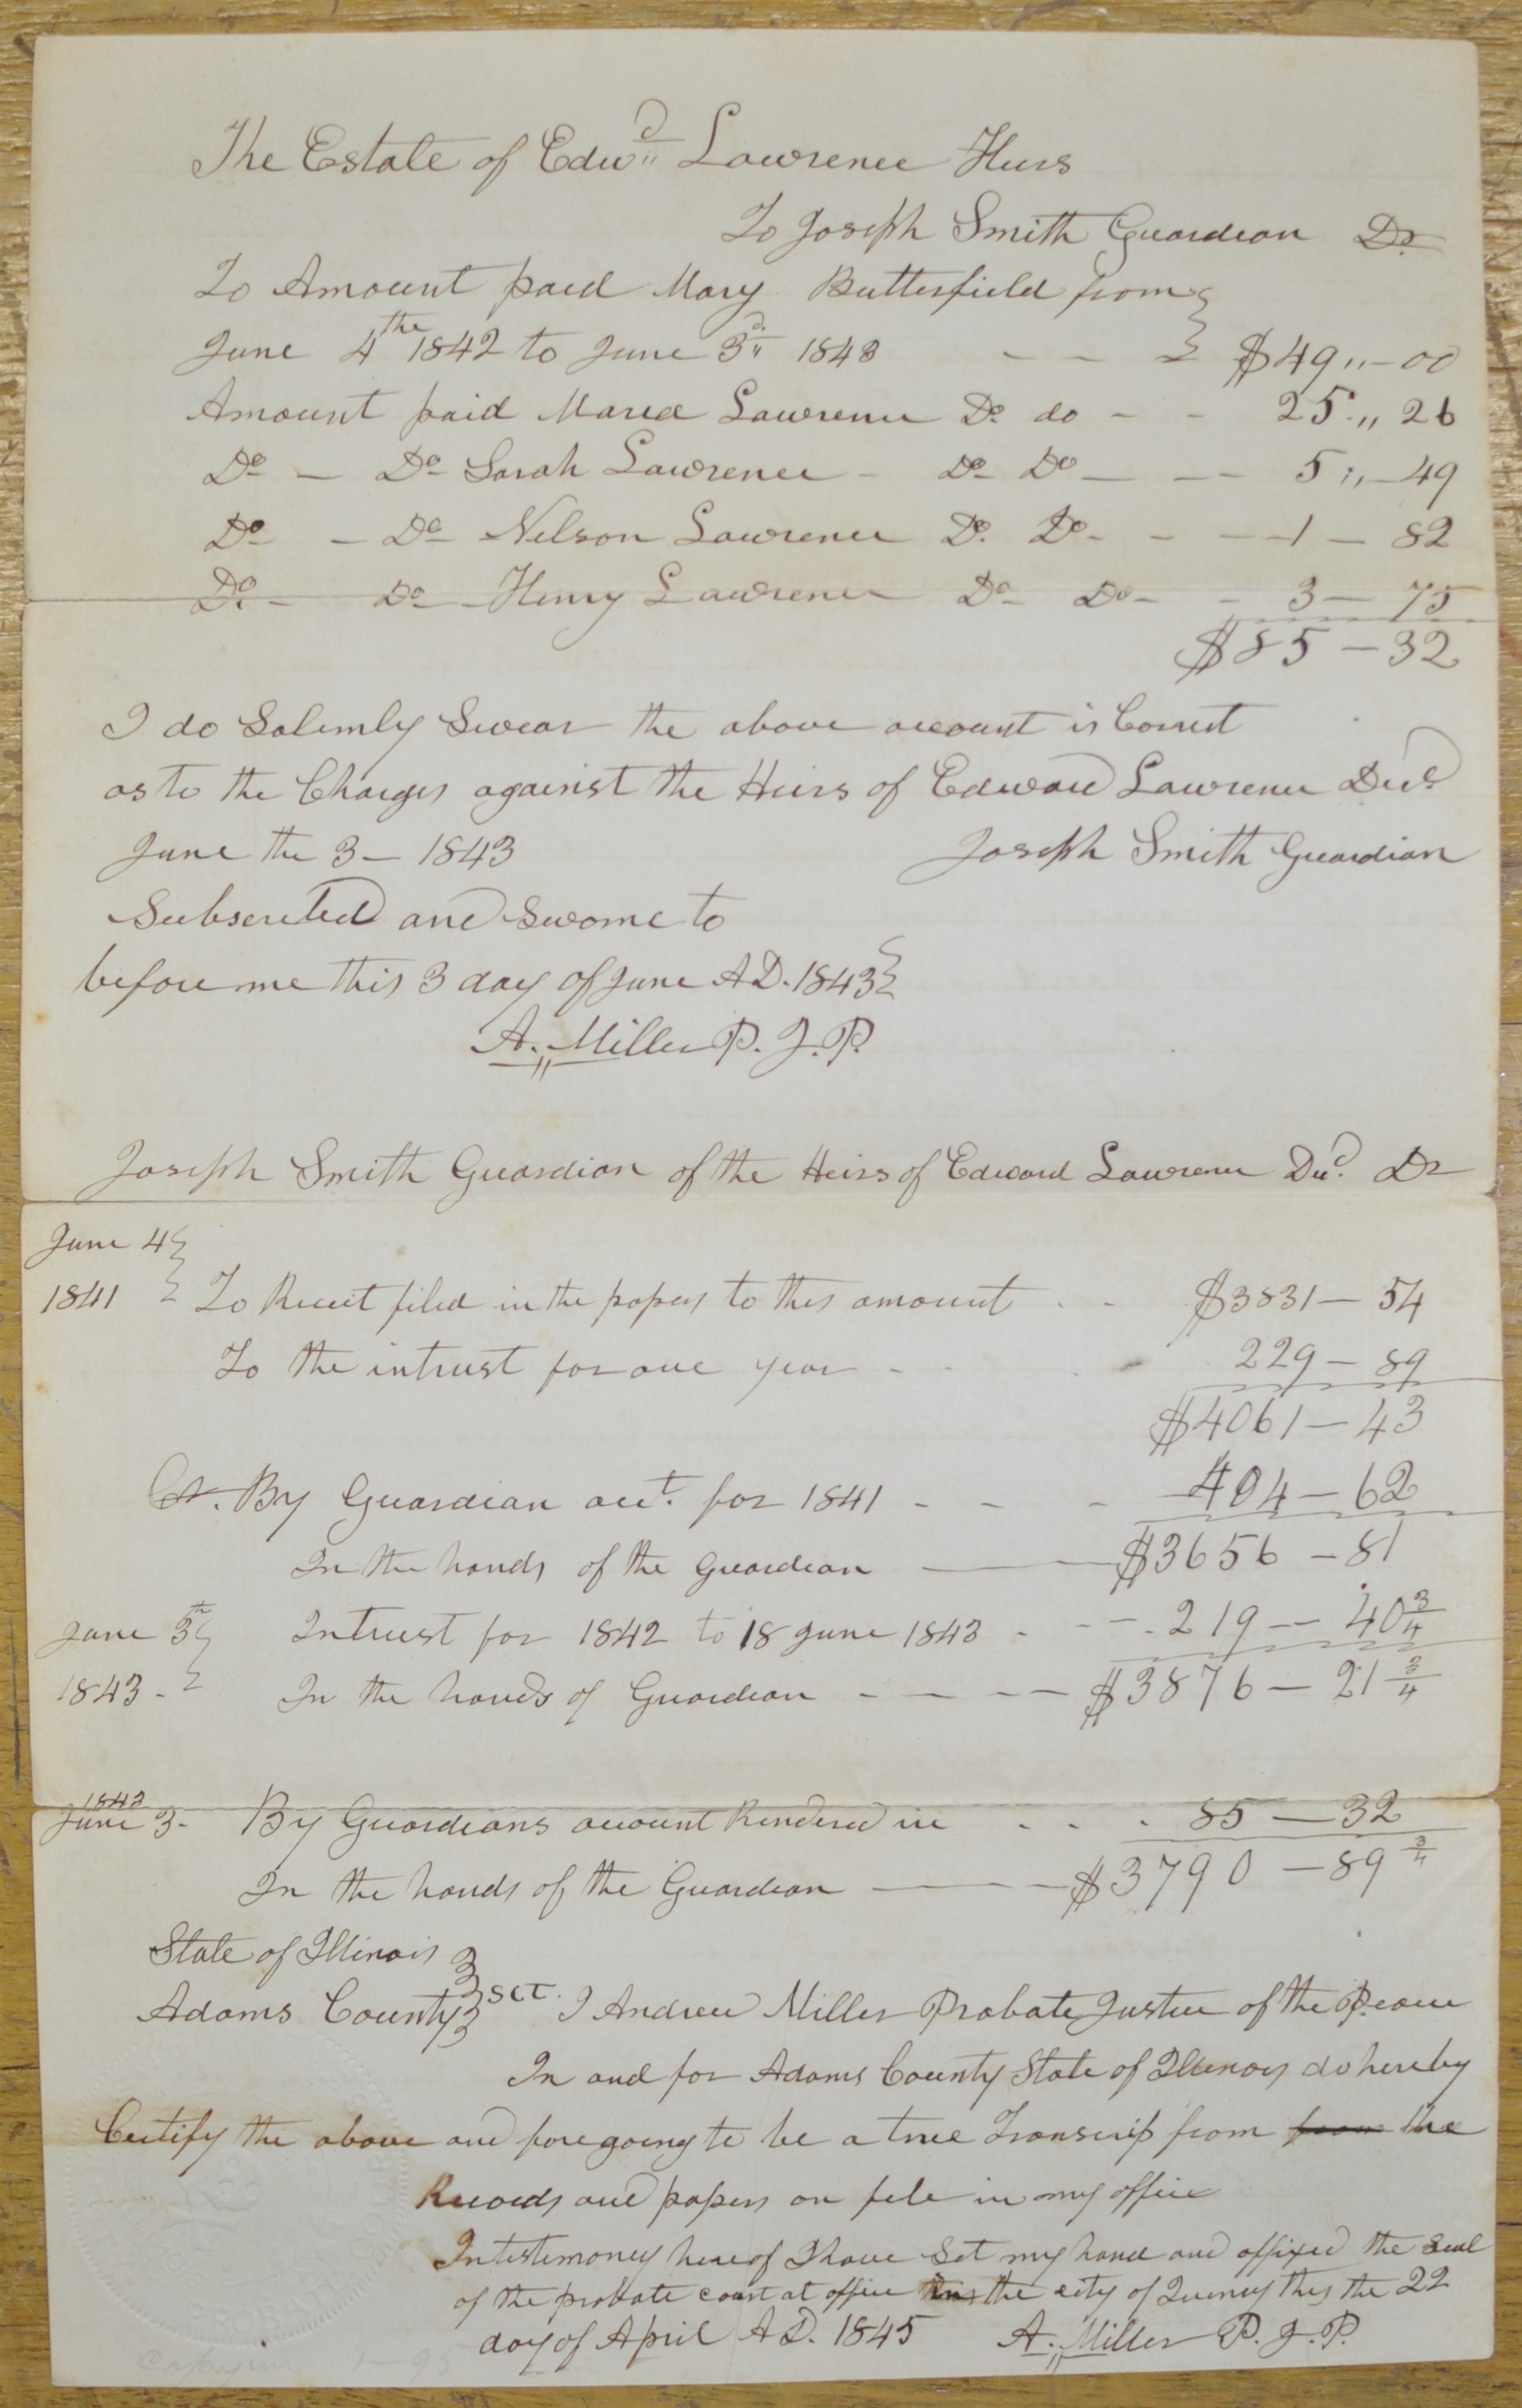 The Estate of Edwd Lawrence Heirs
To Joseph Smith Guardian Dr
To Amount paid Mary Butterfield from
June 4th 1842 to June 3d 1843 - - $49,,-00
Amount paid Maria Lawrence Do do - - 25.,, 26
Do - Do Sarah Lawrence - Do Do - - 5,,-49
Do - Do Nelson Lawrence Do Do - - - 1 - 82
Do - Do - Henry Lawrence Do Do - - 3 - 75
$85 - 32
I do Solemly Swear the above account is Correct
as to the Charges against the Heirs of Edward Lawrence Decd
June the 3 - 1843 Joseph Smith Guardian
Subscribed and Sworne to
before me this 3 day of June A D. 1843
A. Miller P. J. P.
Joseph Smith Guardian of the Heirs of Edward Lawrence Decd. Dr
June 4
1841 To Receit filed in the papers to this amount - - $3831 - 54
To the intrust for one year - - 229 - 89
$4061 - 43
Cr. By Guardian acct. for 1841 - - - 404 - 62
In the hands of the Guardian — $3656 - 81
June 3th Intrust for 1842 to 18 June 1843 - - - 219 - 40 3/4
1843 - In the hands of Guardian - - - - $3876 - 21 3/4
1843
June 3 - By Guardians account Rendered in - - - 85 - 32
In the hands of the Guardian — $3790 - 89 3/4
State of Illinois
Adams County Sct. I Andrew Miller Probate Justice of the Peace
In and for Adams County State of Illinois do hereby
Certify the above and foregoing to be a true Transcrip from from the
Records and papers on file in my office
In testimoney hereof I have Set my hand and affixed the Seal
of the probate court at office in the city of Quincy this the 22
day of April A D. 1845 A. Miller P. J. P.